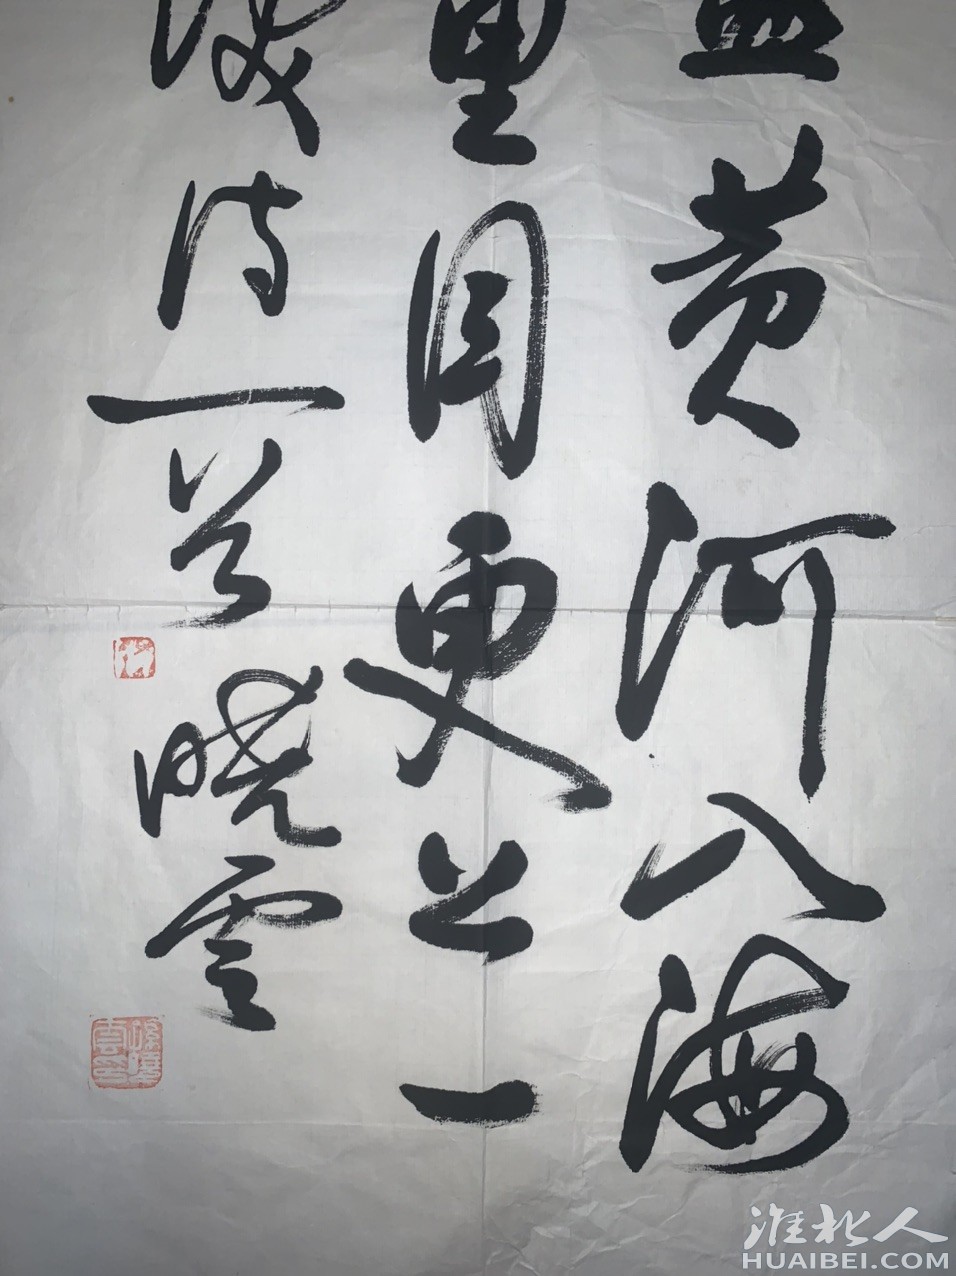 盡黄河入海
里目更上一
涣诗一首
晓雲
孫曉雲印
淮北人
HUAIBEI.COM